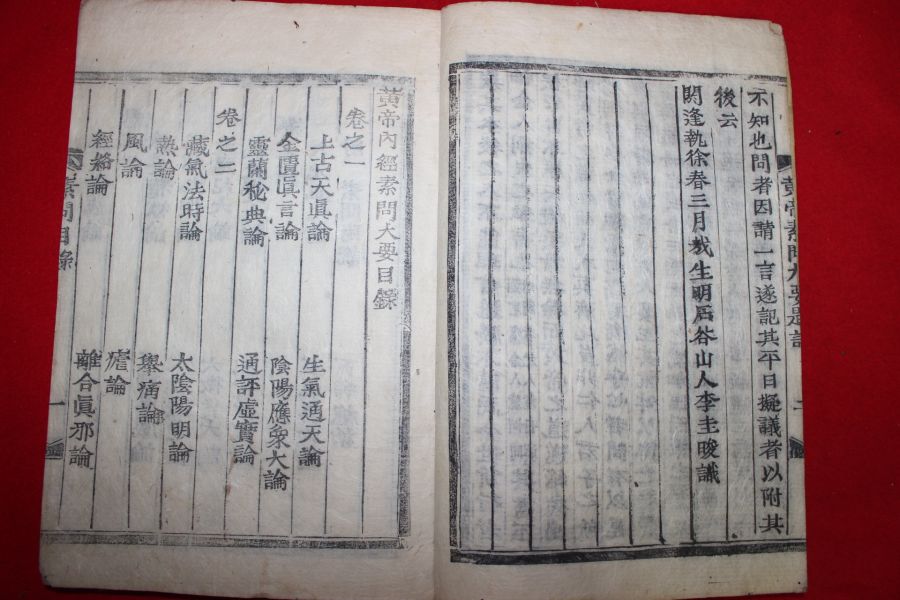 黃帝素問大要是記
二
不知也問者因請一言遂記其平日擬議者以附其
後云
閼逢執徐春三月哉生明石谷山人李圭晙識
黃帝內經素問大要目錄
卷之一
上古天眞論 生氣通天論
金匱眞言論 陰陽應象大論
靈蘭秘典論 通評虛實論
卷之二
藏氣法時論 太陰陽明論
熱論 擧痛論
風論 瘧論
經絡論 離合眞邪論
素問目錄
一